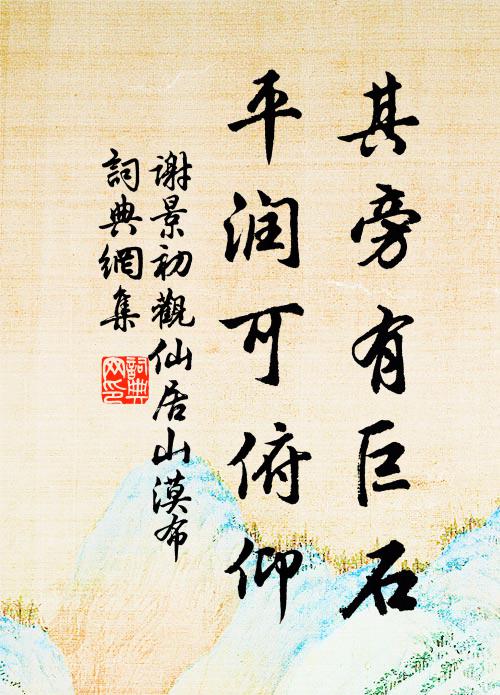 其旁有巨石
平润可俯仰
谢景初觀仙居山漠布
詞典網集
詞典网印